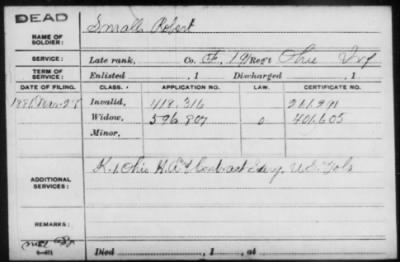 DEAD
NAME OF SOLDIER: Small Robert
SERVICE: Late rank, Co. F, 19 Reg't Ohio Inf
TERM OF SERVICE: Enlisted , 1 Discharged , 1
DATE OF FILING. CLASS. APPLICATION NO. LAW. CERTIFICATE NO.
Invalid, 418,316
Widow, 596,807 401,605
Minor,
ADDITIONAL SERVICES: K, 1 Ohio H.A. & Contract Surg. U.S. Vols
REMARKS:
Died , 1 , at